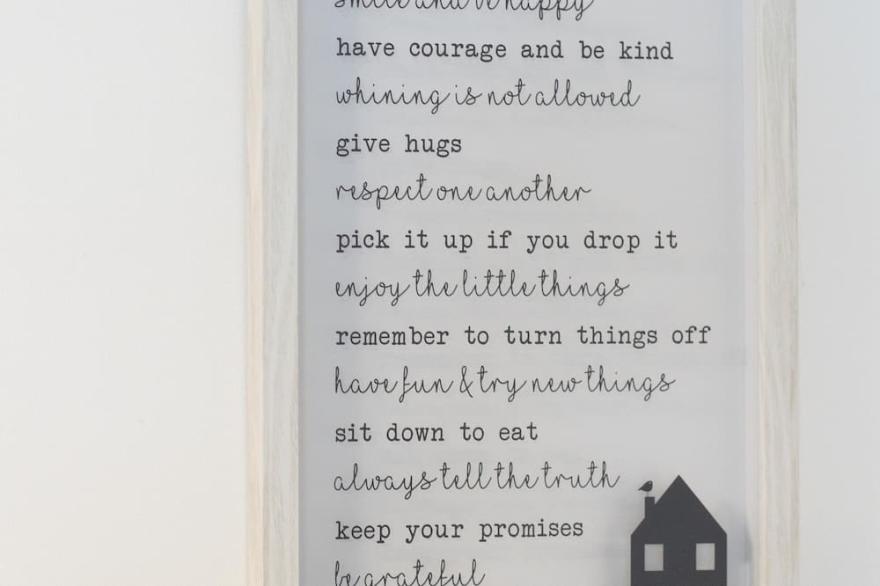 smile and be happy
have courage and be kind
whining is not allowed
give hugs
respect one another
pick it up if you drop it
enjoy the little things
remember to turn things off
have fun & try new things
sit down to eat
always tell the truth
keep your promises
be grateful